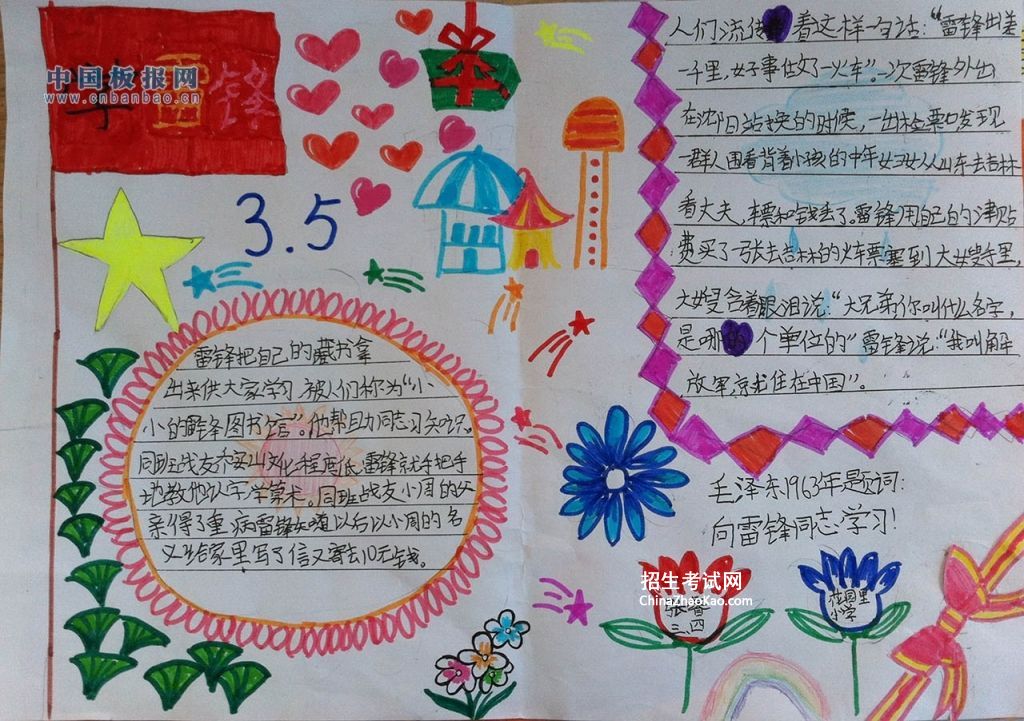 中国板报网
www.cnbanbao.cn
学雷锋
3.5
雷锋把自己的藏书拿
出来供大家学习,被人们称为“小
小的雷锋图书馆”。他帮助同志习知识。
同班战友乔安山文化程度低,雷锋就手把手
地教他认字,学算术。同班战友小周的父
亲得了重病,雷锋知道以后,以小周的名
义给家里写了信又寄去10元钱。
人们流传着这样一句话:“雷锋出差
一千里,好事做了一火车”。次雷锋外出
在沈阳站换的时候,一出检票口发现
一群人围看背着小孩的中年妇女从山东去吉林
看丈夫,车票和钱丢了。雷锋用自己的津贴
费买了一张去吉林的火车票塞到大嫂手里,
大嫂含着眼泪说:“大兄弟你叫什么名字,
是哪个单位的”雷锋说:“我叫解
放军,就住在中国”。
毛泽东1963年题词:
向雷锋同志学习!
招生考试网
ChinaZhaoKao.com
三、四
花园里
小学